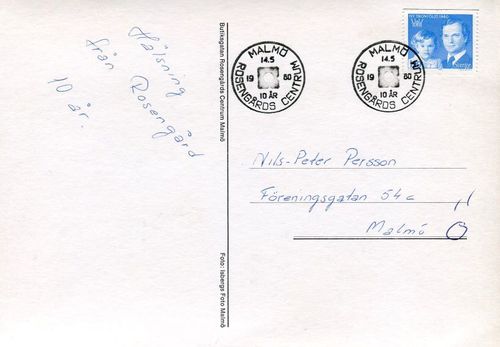 Hälsning
från Rosengård
10 år.
Butiksgatan Rosengårds Centrum Malmö
Foto: Isbergs Foto Malmö
MALMÖ
14.5
1980
10 ÅR
ROSENGÅRDS CENTRUM
MALMÖ
14.5
1980
10 ÅR
ROSENGÅRDS CENTRUM
Sverige
Nils-Peter Persson
Föreningsgatan 54c
Malmö